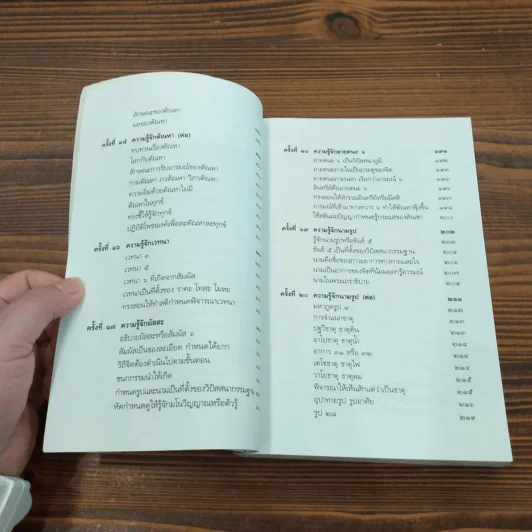 ลักษณะของตัณหา
ผลของตัณหา
ครั้งที่ ๑๕ ความรู้จักตัณหา (ต่อ)
ทบทวนเรื่องตัณหา
โลกกับตัณหา
ลักษณะการจับอารมณ์ของตัณหา
กามตัณหา ภวตัณหา วิภวตัณหา
ความอิ่มด้วยตัณหาไม่มี
ตัณหาในทุกข์
ทรงชี้ให้รู้จักทุกข์
ปฏิบัติโพชฌงค์เพื่อละตัณหาละทุกข์
ครั้งที่ ๑๖ ความรู้จักเวทนา
เวทนา ๓
เวทนา ๕
เวทนา ๖ ที่เกิดจากสัมผัส
เวทนาเป็นที่ตั้งของ ราคะ โทสะ โมหะ
ทรงสอนให้ทำสติกำหนดพิจารณาเวทนา
ครั้งที่ ๑๗ ความรู้จักผัสสะ
อธิบายผัสสะหรือสัมผัส ๖
สัมผัสเป็นของละเอียด กำหนดได้ยาก
วิถีจิตต้องดำเนินไปตามขั้นตอน
ชนกกรรมนำให้เกิด
กำหนดรูปและนามเป็นที่ตั้งของวิปัสสนากรรมฐาน
หัดกำหนดดูให้รู้จักมโนวิญญาณหรือตัวรู้
ครั้งที่ ๑๘ ความรู้จักอายตนะ ๖
อายตนะ ๖ เป็นวิปัสสนาภูมิ
อายตนะภายในเป็นประตูของจิต
อายตนะภายนอก เรียกว่าอารมณ์ ๖
อินทรีย์คืออายตนะ ๖
ทรงสอนให้สำรวมอินทรีย์หรือมีสติ
อารมณ์ที่เข้ามาทางทวาร ๖ ทำให้ตัณหาฟุ้งขึ้น
ใช้สติและปัญญากำหนดรู้กระแสของตัณหา
ครั้งที่ ๑๙ ความรู้จักนามรูป ๒๐๒
รู้จักนามรูปหรือขันธ์ ๕
ขันธ์ ๕ เป็นที่ตั้งของวิปัสสนากรรมฐาน
นามคือชื่อของภาวะอาการทางกายและใจ
นามเป็นอาการของจิตที่น้อมออกรู้อารมณ์
นามในพระเถราธิบาย
ครั้งที่ ๒๐ ความรู้จักนามรูป (ต่อ) ๒๑๑
มหาภูตรูป ๔
การจำแนกธาตุ
ปฐวีธาตุ ธาตุดิน
อาโปธาตุ ธาตุน้ำ
อาการ ๓๑ หรือ ๓๒
เตโชธาตุ ธาตุไฟ
วาโยธาตุ ธาตุลม
พิจารณาให้เห็นสักแต่ว่าเป็นธาตุ
อุปาทายรูป รูปอาศัย
รูป ๒๘